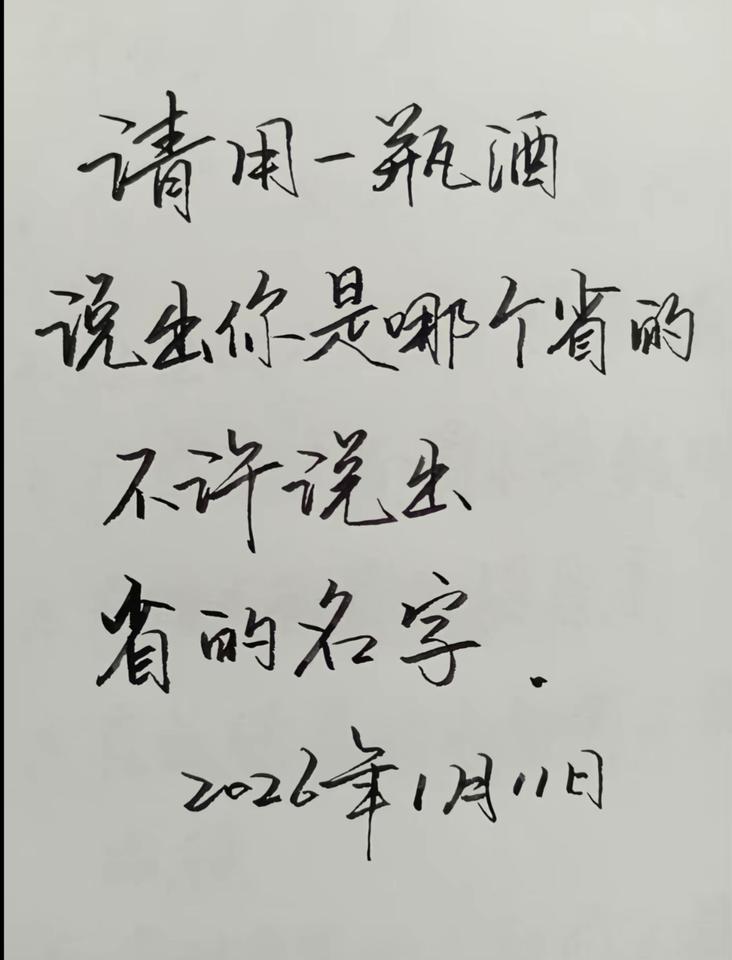 请用一瓶酒
说出你是哪个省的
不许说出
省的名字.
2026年1月11日